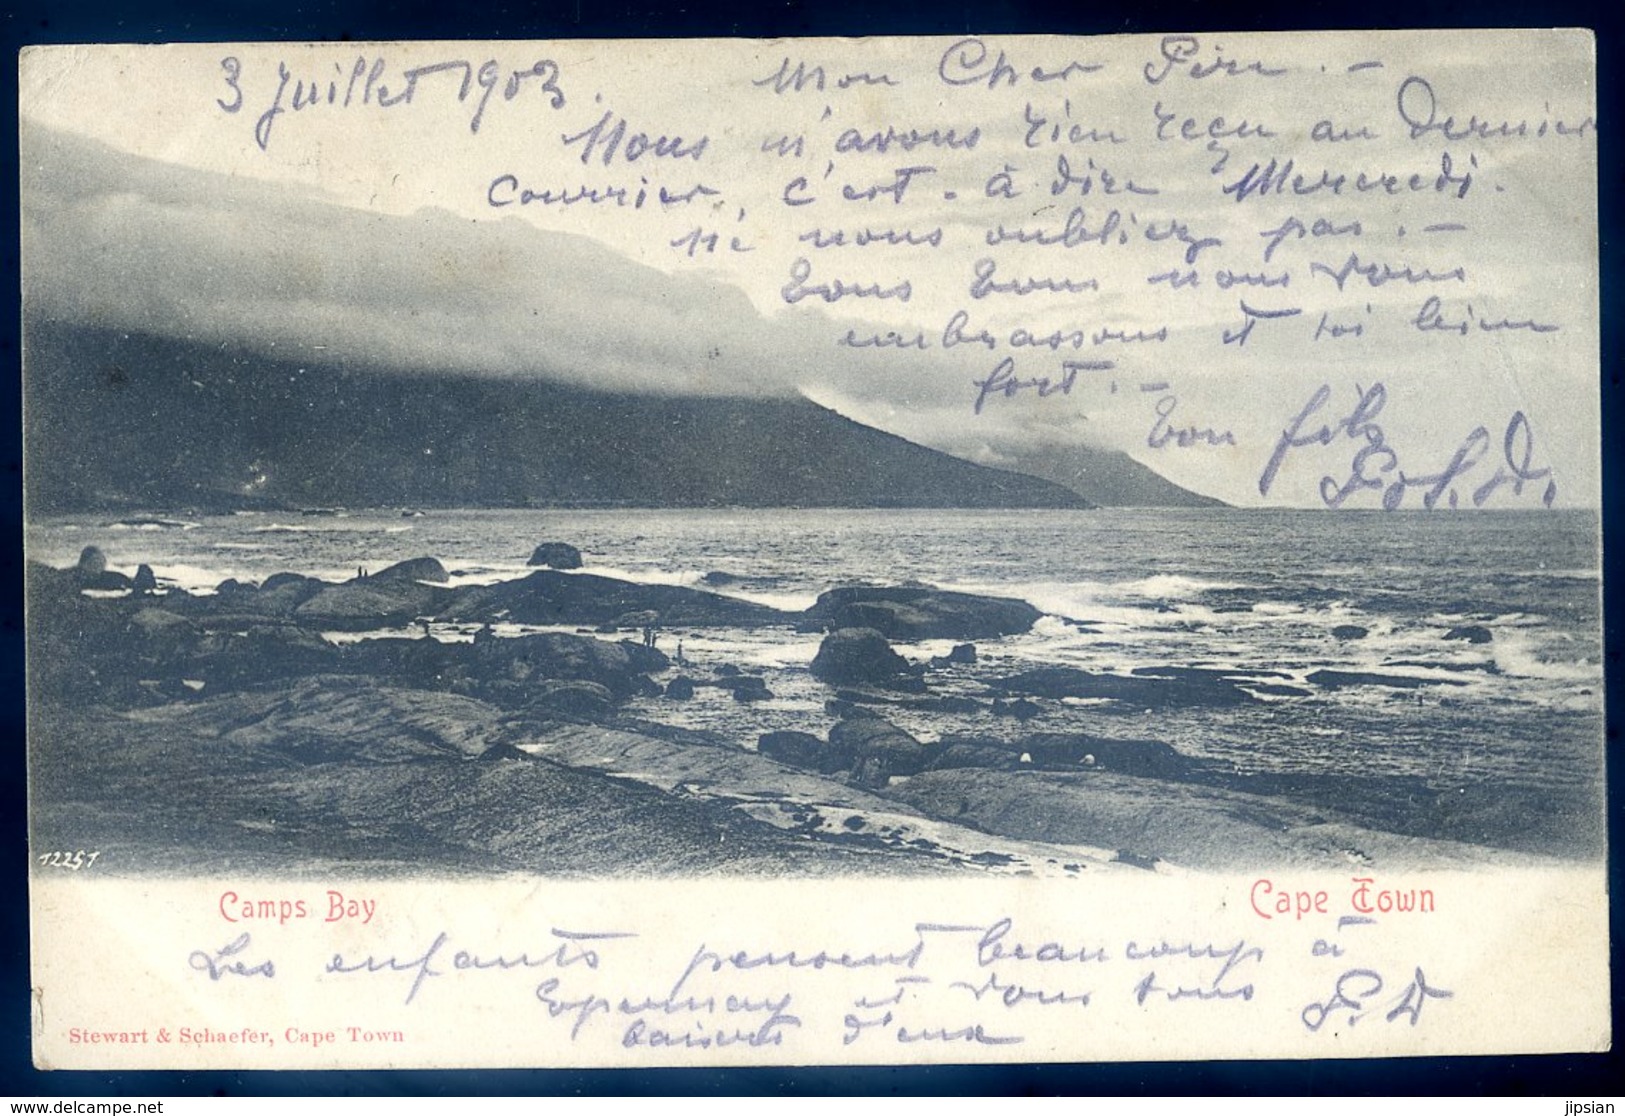 3 Juillet 1903.
Mon Cher Père. -
Nous n'avons rien reçu au dernier
courrier, c'est-à-dire Mercredi.
Ne nous oubliez pas. -
Tous tous nous vous
embrassons et toi bien
fort. -
Ton fils
12251
Camps Bay
Cape Town
Les enfants pensent beaucoup à
Epernay et vous tous
baisers d'eux
F. D
Stewart & Schaefer, Cape Town
jipsian